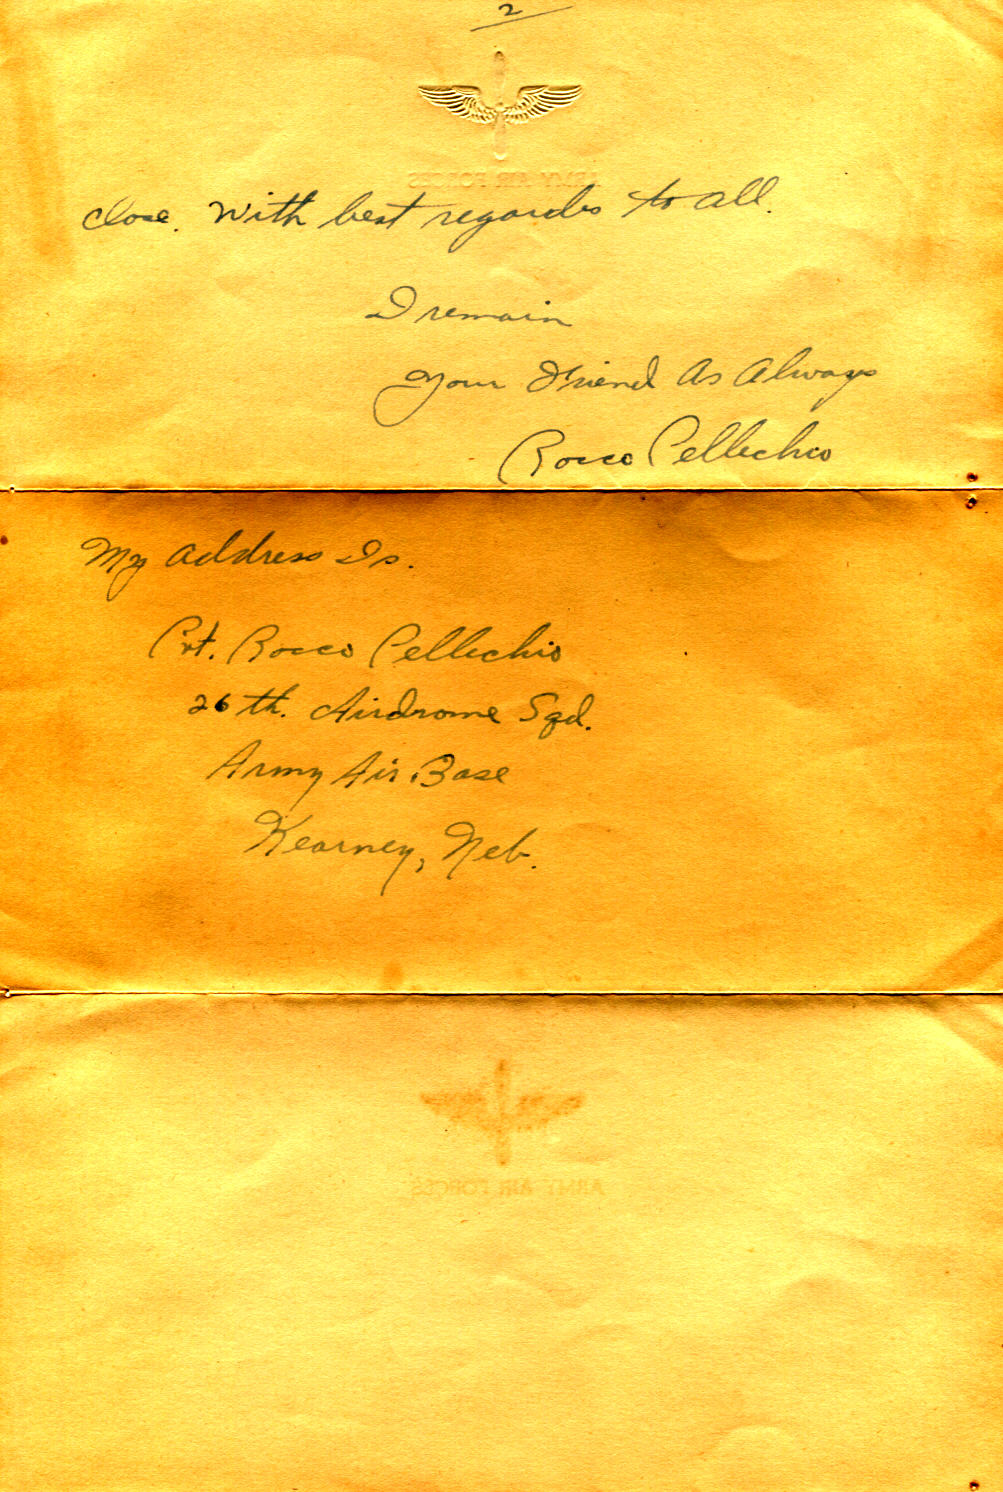 2
ARMY AIR FORCES
close. With best regards to all.
I remain
Your Friend As Always
Rocco Pellechio
My Address Is.
Pvt. Rocco Pellechio
26th. Airdrome Sqd.
Army Air Base
Kearney, Neb.
ARMY AIR FORCES